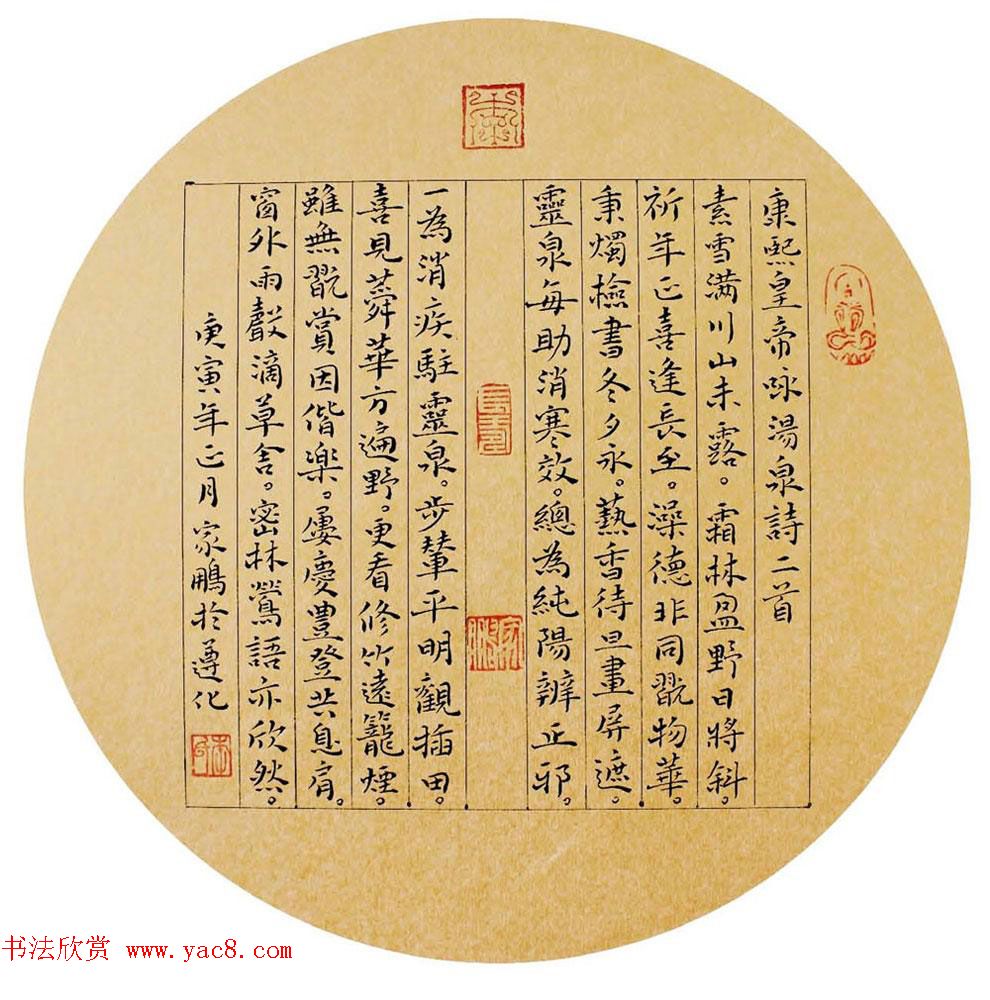 康熙皇帝咏湯泉詩二首
素雪满川山未露。霜林盈野日將斜。
祈年正喜逢長至。澡德非同翫物華。
秉燭檢書冬夕永。爇香待旦畫屏遮。
靈泉每助消寒效。總為純陽辨正邪。
一為消疾駐靈泉。步輦平明觀插田。
喜見蕣華方遍野。更看修竹遠籠煙。
雖無翫賞因偕樂。屢慶豊登共息肩。
窗外雨聲滴草舍。密林鶯語亦欣然。
庚寅年正月家鵬於遵化
书法欣赏 www.yac8.com